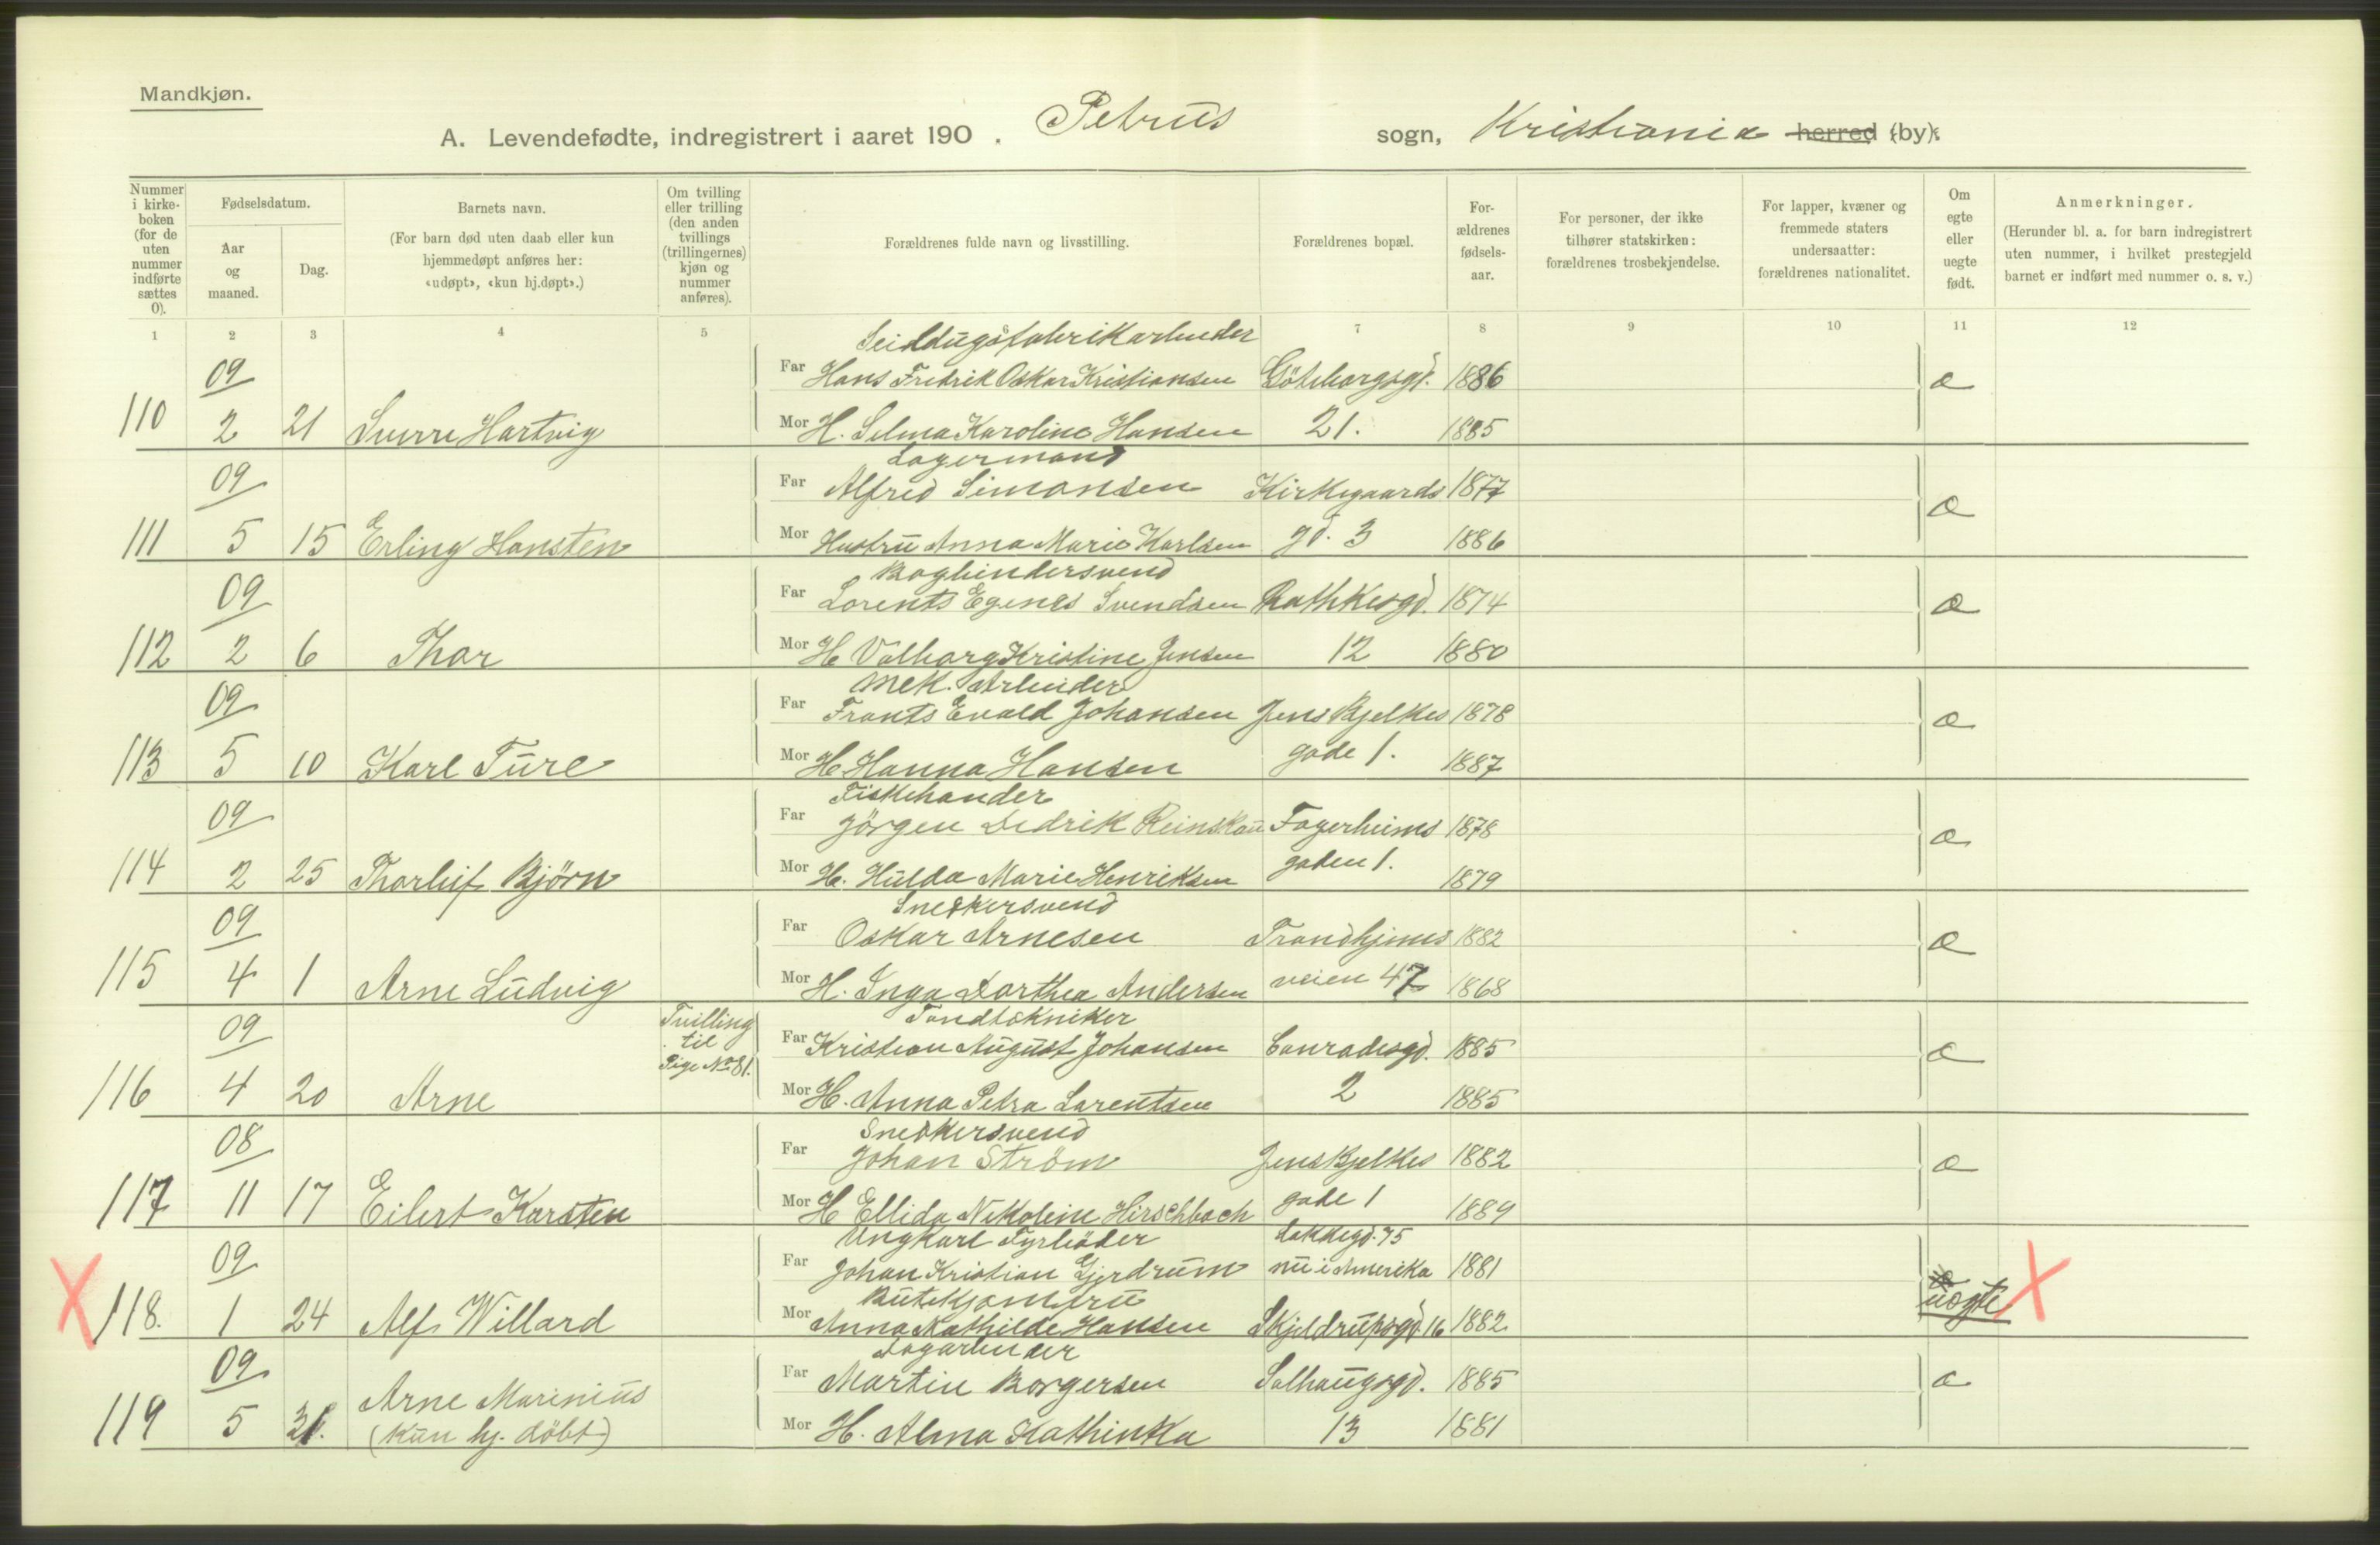 Mandkjøn.
A. Levendefødte, indregistrert i aaret 190 . Petrus sogn, Kristiania herred (by).
Nummer i kirke-boken (for de uten nummer indførte sættes 0).
Fødselsdatum.
Aar og maaned.
Dag.
Barnets navn.
(For barn død uten daab eller kun hjemmedøpt anføres her: «udøpt», «kun hj.døpt».)
Om tvilling eller trilling (den anden tvillings (trillingernes) kjøn og nummer anføres).
Forældrenes fulde navn og livsstilling.
Forældrenes bopæl.
For-ældrenes fødsels-aar.
For personer, der ikke tilhører statskirken: forældrenes trosbekjendelse.
For lapper, kvæner og fremmede staters undersaatter: forældrenes nationalitet.
Om egte eller uegte født.
Anmerkninger.
(Herunder bl. a. for barn indregistrert uten nummer, i hvilket prestegjeld barnet er indført med nummer o. s. v.)
1 2 3 4 5 6 7 8 9 10 11 12
Seildugsfabrikarbeider
09 Far Hans Fredrik Oskar Kristiansen Göteborgsgd. 1886 æ
110 2 21 Sverre Hartvig Mor H. Selma Karoline Hansen 21. 1885
Lagermand
09 Far Alfred Simonsen Kirkegaards 1877 æ
111 5 15 Erling Hansten Mor Hustru Anna Marie Karlsen gd. 3 1886
Bogbindersvend
09 Far Lorents Egenes Svendsen Rathkesgd. 1874 æ
112 2 6 Thor Mor H Valborg Kristine Jensen 12 1880
Mek. Arbeider
09 Far Frants Evald Johansen Jens Bjelkes 1878 æ
113 5 10 Karl Ture Mor H. Hanna Hansen gade 1. 1887
Fiskehander
09 Far Jörgen Dedrik Reinskau Fagerheims 1878 æ
114 2 25 Thorleif Björn Mor H. Hulda Marie Henriksen gaden 1. 1879
Snedkersvend
09 Far Oskar Arnesen Trondhjems 1882 æ
115 4 1 Arne Ludvig Mor H. Inga Dorthea Andersen veien 47 1868
Tandtekniker
09 Tvilling til Pige No 81. Far Kristian August Johansen Conradisgd. 1885 æ
116 4 20 Arne Mor H. Anna Petra Larentsen 2 1885
Snedkersvend
08 Far Johan Ström Jens Bjelkes 1882 æ
117 11 17 Eilert Karsten Mor H Ellida Nikoleine Hirschbach gade 1 1889
Ungkarl Fyrböder Lakkegd. 75
09 Far Johan Kristian Gjerdrum nu i Amerika 1881
Butikjomfru
X 118. 1 24 Alf Willard Mor Anna Mathilde Hansen Skjeldrupsgd 16 1882 uegte X
Dagarbeider
09 Far Martin Borgersen Solhaugsgd. 1885 æ
119 5 31. Arne Marinius (kun hj. döbt) Mor H. Alma Kathinka 13 1881